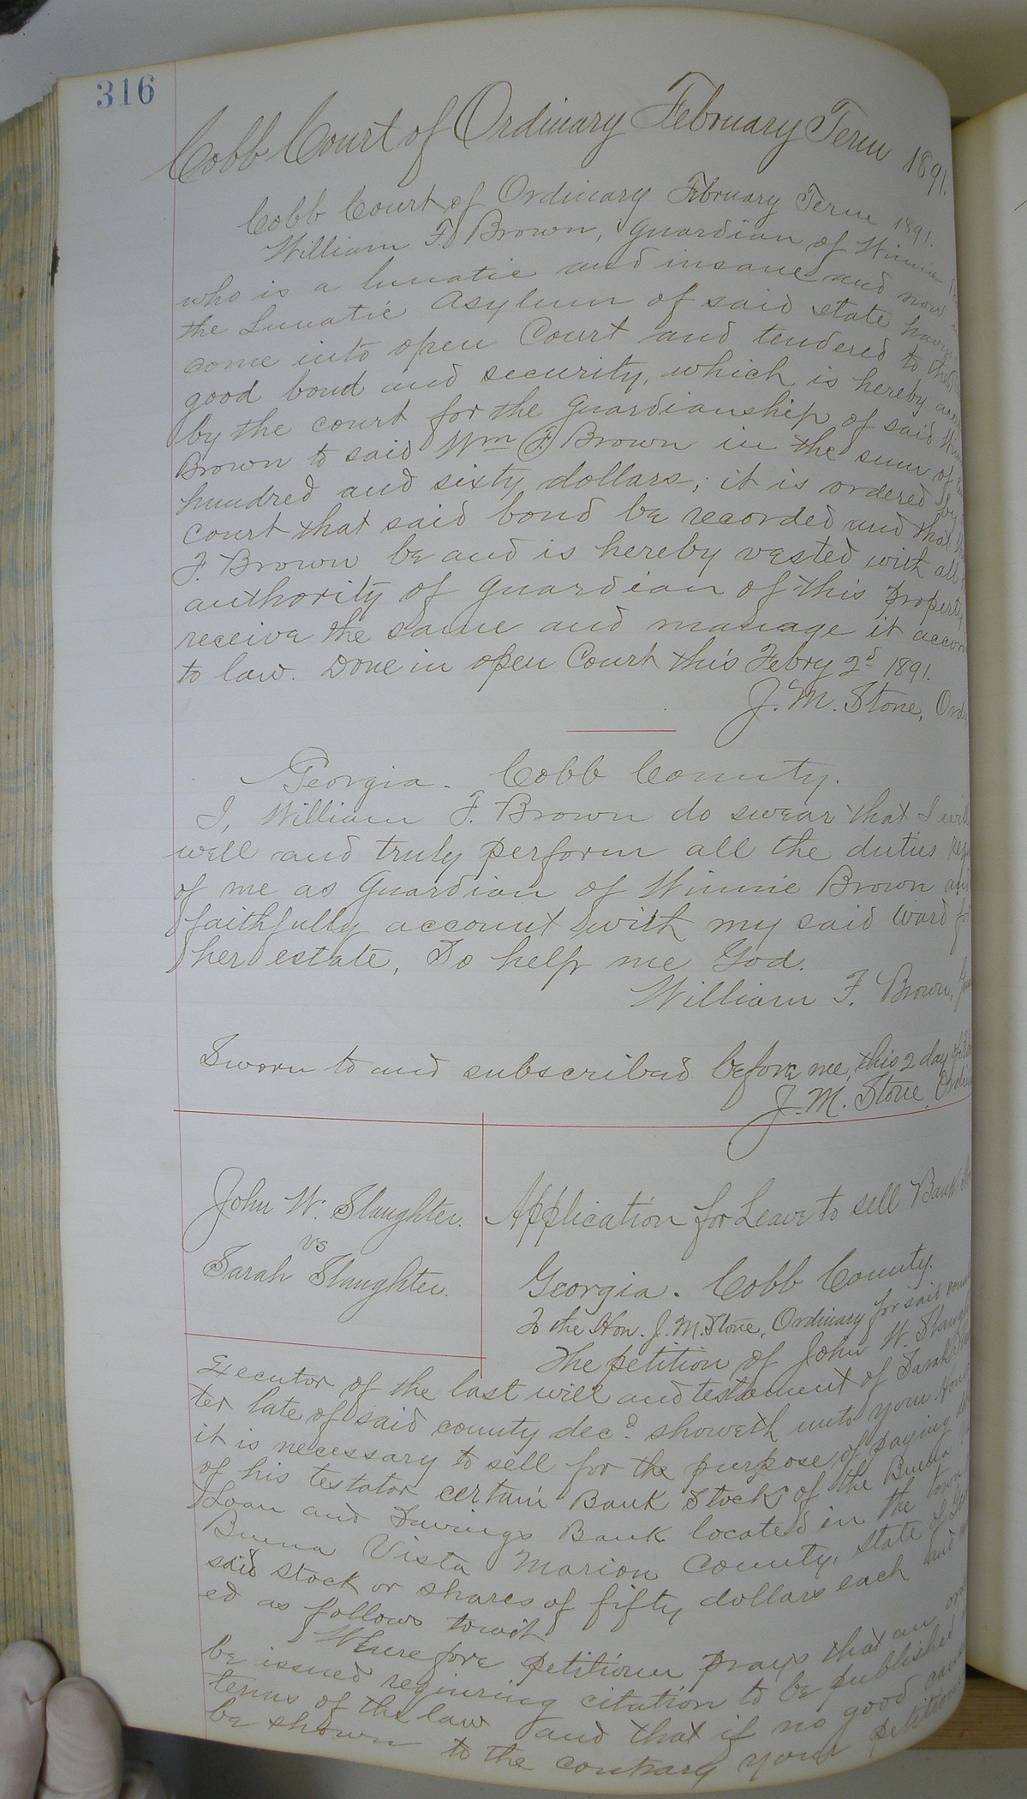 316
Cobb Court of Ordinary February Term 1891.
Cobb Court of Ordinary February Term 1891.
William F. Brown, Guardian of Winnie
who is a lunatic and insane and now
the Lunatic Asylum of said state having
come into open Court and tendered to
good bond and security, which is hereby
by the court for the Guardianship of said
Brown to said Wm F. Brown in the sum of
hundred and sixty dollars; it is ordered by
court that said bond be recorded and that
F. Brown be and is hereby vested with all
authority of Guardian of this property
receive the same and manage it accor
to law. Done in open Court this Febry 2d 1891.
J. M. Stone, Ordi
Georgia. Cobb County.
I, William F. Brown do swear that I will
well and truly perform all the duties
of me as Guardian of Winnie Brown and
faithfully account with my said Ward for
her estate, So help me God.
William F. Brown,
Sworn to and subscribed before me, this 2 day of
J. M. Stone, Ordi
John W. Slaughter.
vs
Sarah Slaughter.
Application for Leave to sell Bank
Georgia. Cobb County.
To the Hon. J. M. Stone, Ordinary for said
The petition of John W. Slaugh
Executor of the last will and testament of Sarah
ter late of said county decd. showeth unto your Honor
it is necessary to sell for the purpose of paying
of his testator certain Bank Stock of the Buena
Loan and Savings Bank located in the town
Buena Vista Marion County, state of
said stock or shares of fifty dollars each and
ed as follows towit
Wherefore petitioner prays that an
be issued requiring citation to be published
terms of the law and that if no good
be shown to the contrary your petition